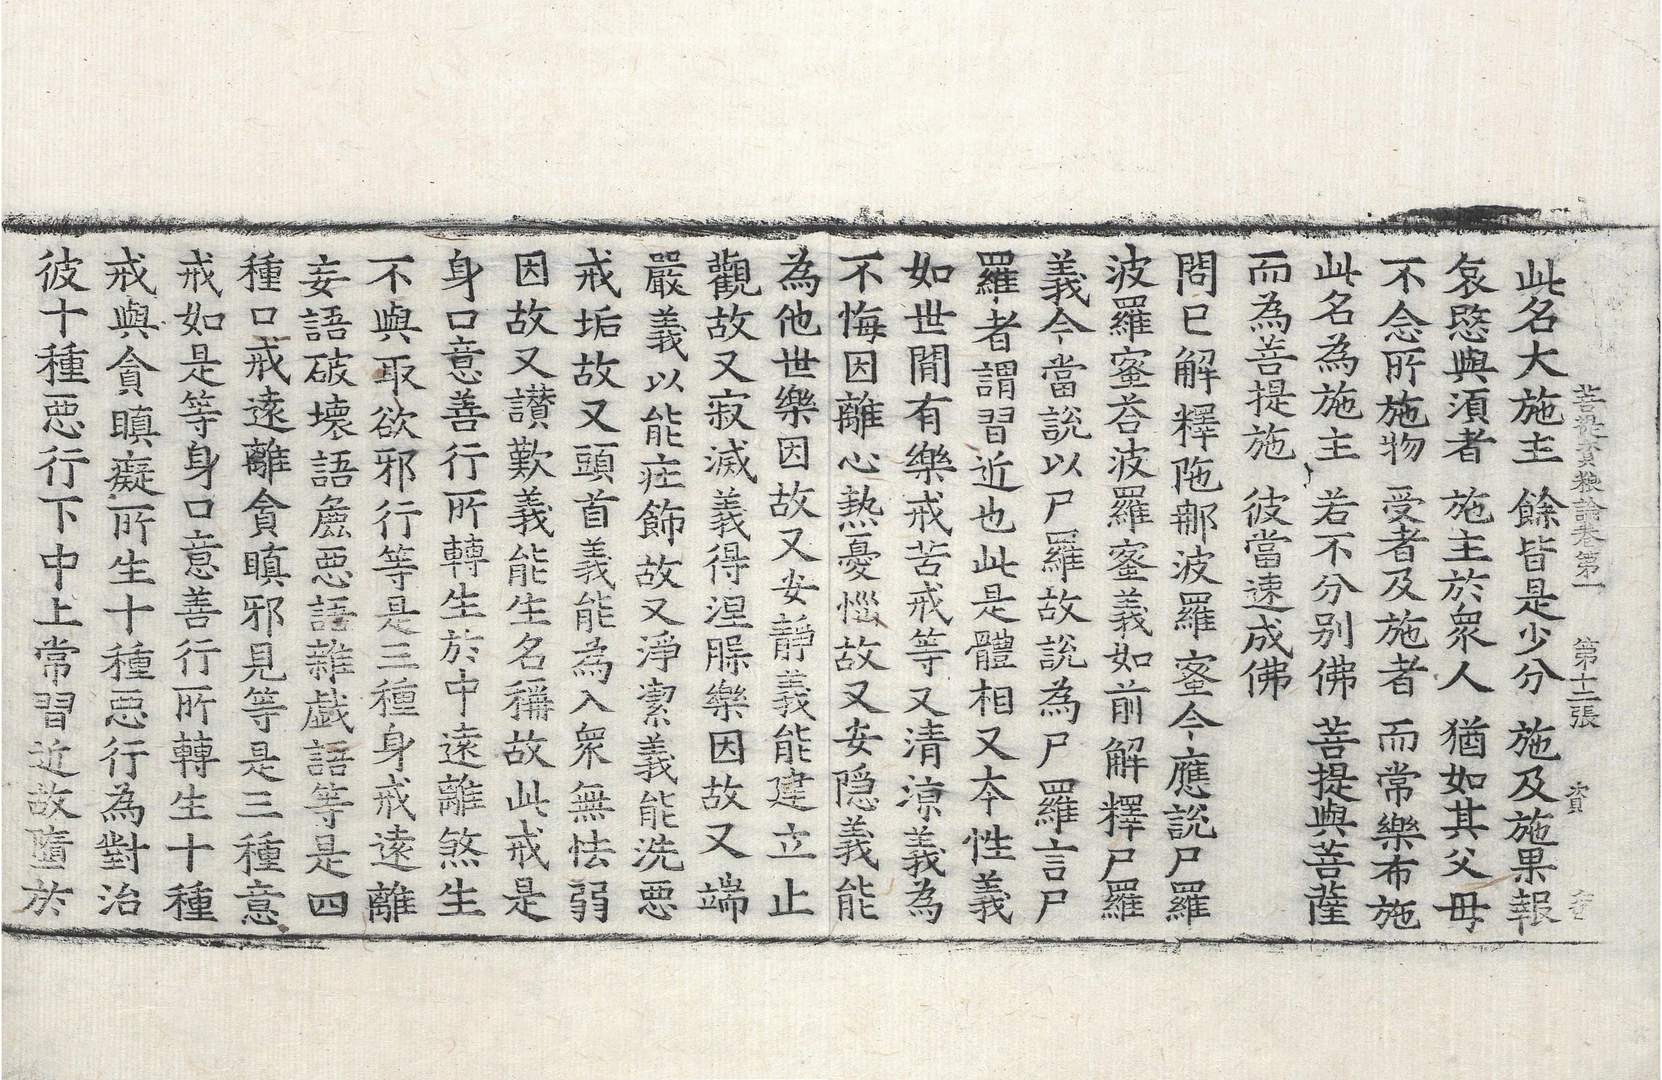 菩提資粮論卷第一 第十二張 資
此名大施主 餘皆是少分 施及施果報
哀愍與湏者 施主於衆人 猶如其父母
不念所施物 受者及施者 而常樂布施
此名為施主 若不分别佛 菩提與菩薩
而為菩提施 彼當速成佛
問已解釋陁郍波羅蜜今應說尸羅
波羅蜜荅波羅蜜義如前解釋尸羅
義今當說以尸羅故說為尸羅言尸
羅者謂習近也此是體相又夲性義
如世閒有樂戒苦戒等又清凉義為
不悔因離心熱憂惱故又安隠義能
為他世樂因故又安靜義能建立止
觀故又寂滅義得涅槃樂因故又端
嚴義以能莊飾故又淨潔義能洗惡
戒垢故又頭首義能為入衆無怯弱
因故又讃歎義能生名稱故此戒是
身口意善行所轉生於中遠離煞生
不與取欲邪行等是三種身戒遠離
妄語破壞語麁惡語雜戯語等是四
種口戒遠離貪瞋邪見等是三種意
戒如是等身口意善行所轉生十種
戒與貪瞋癡所生十種惡行為對治
彼十種惡行下中上常習近故墮於